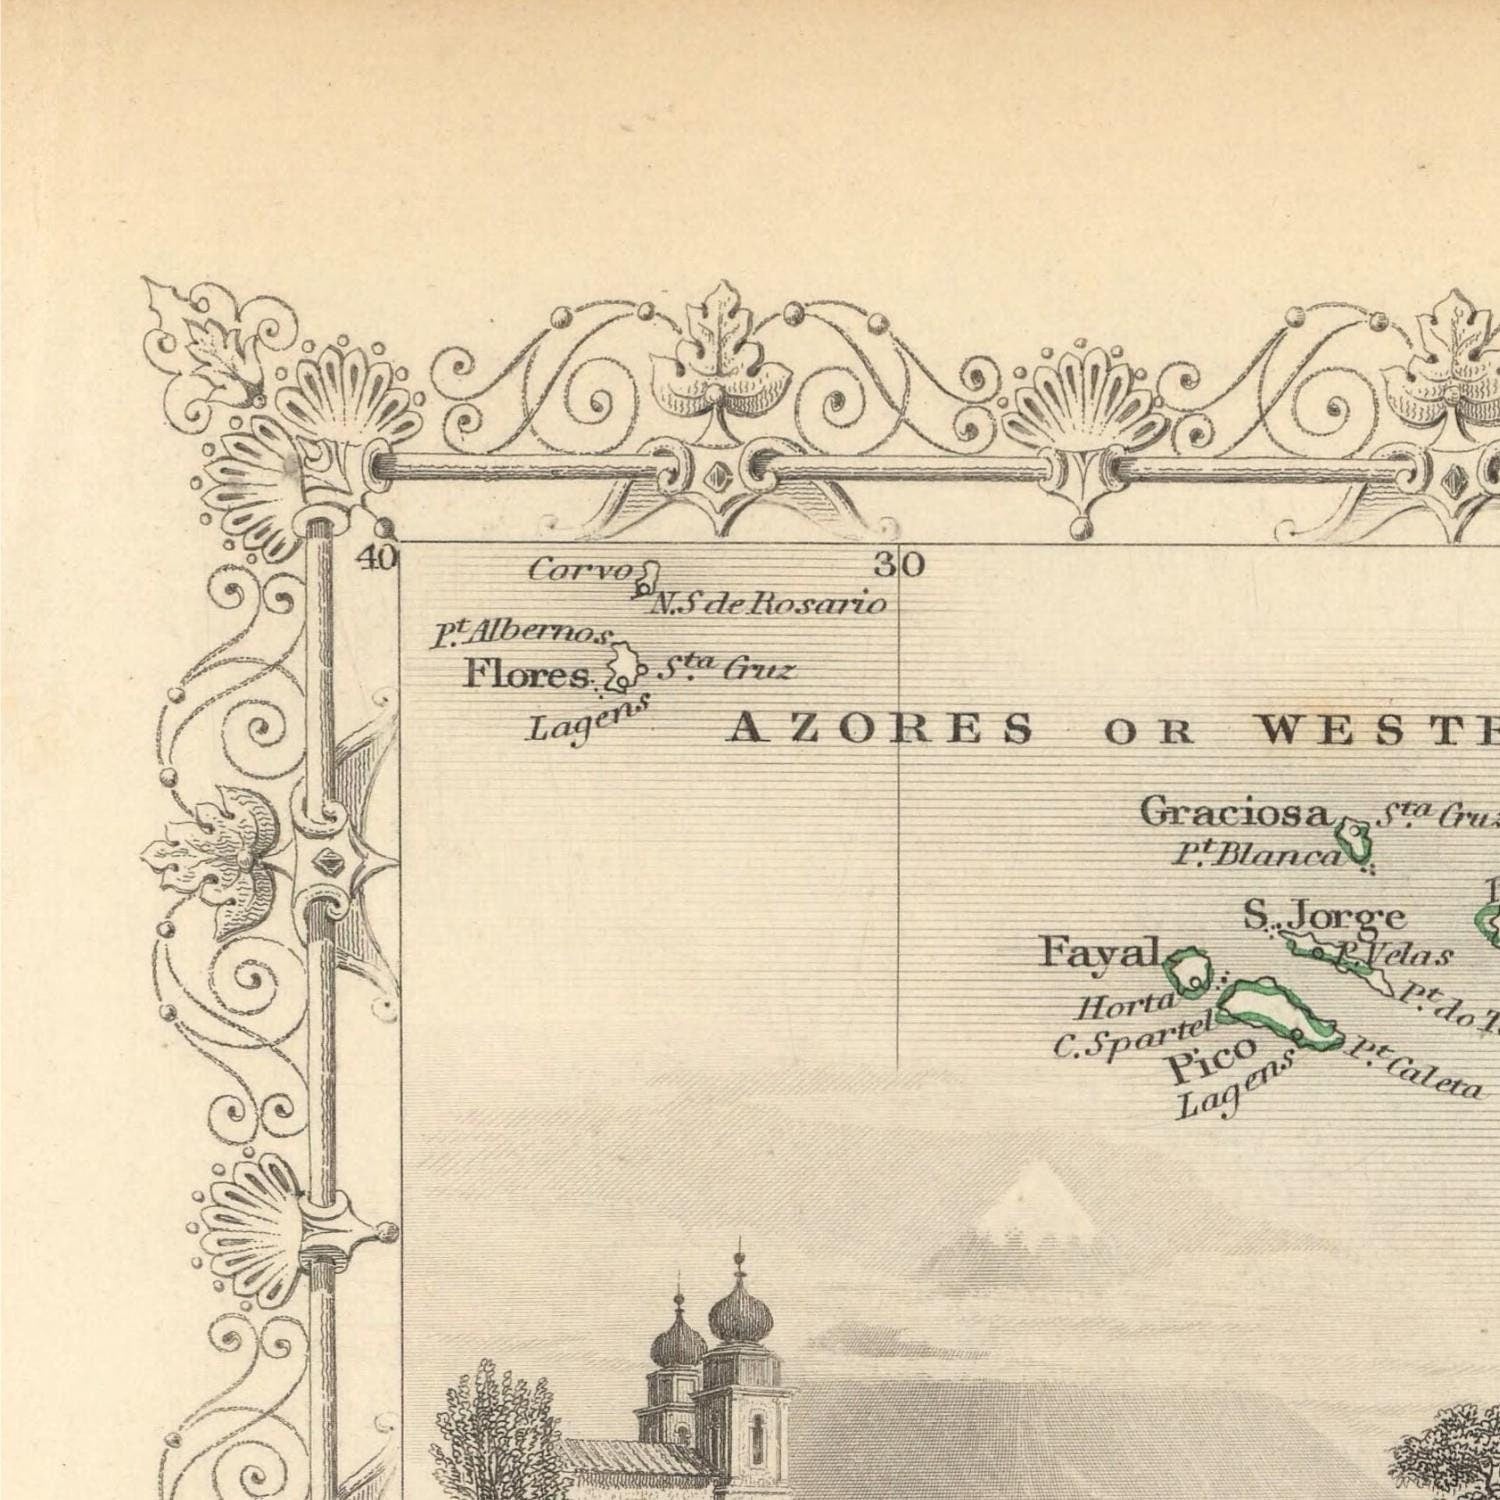 40
30
Corvo
N.S de Rosario
Pt. Albernos
Flores
Sta. Cruz
Lagens
AZORES OR WESTE
Graciosa
Sta. Cruz
Pt. Blanca
S. Jorge
P. Velas
Fayal
Pt. do
Horta
C. Spartel
Pico
Pt. Caleta
Lagens